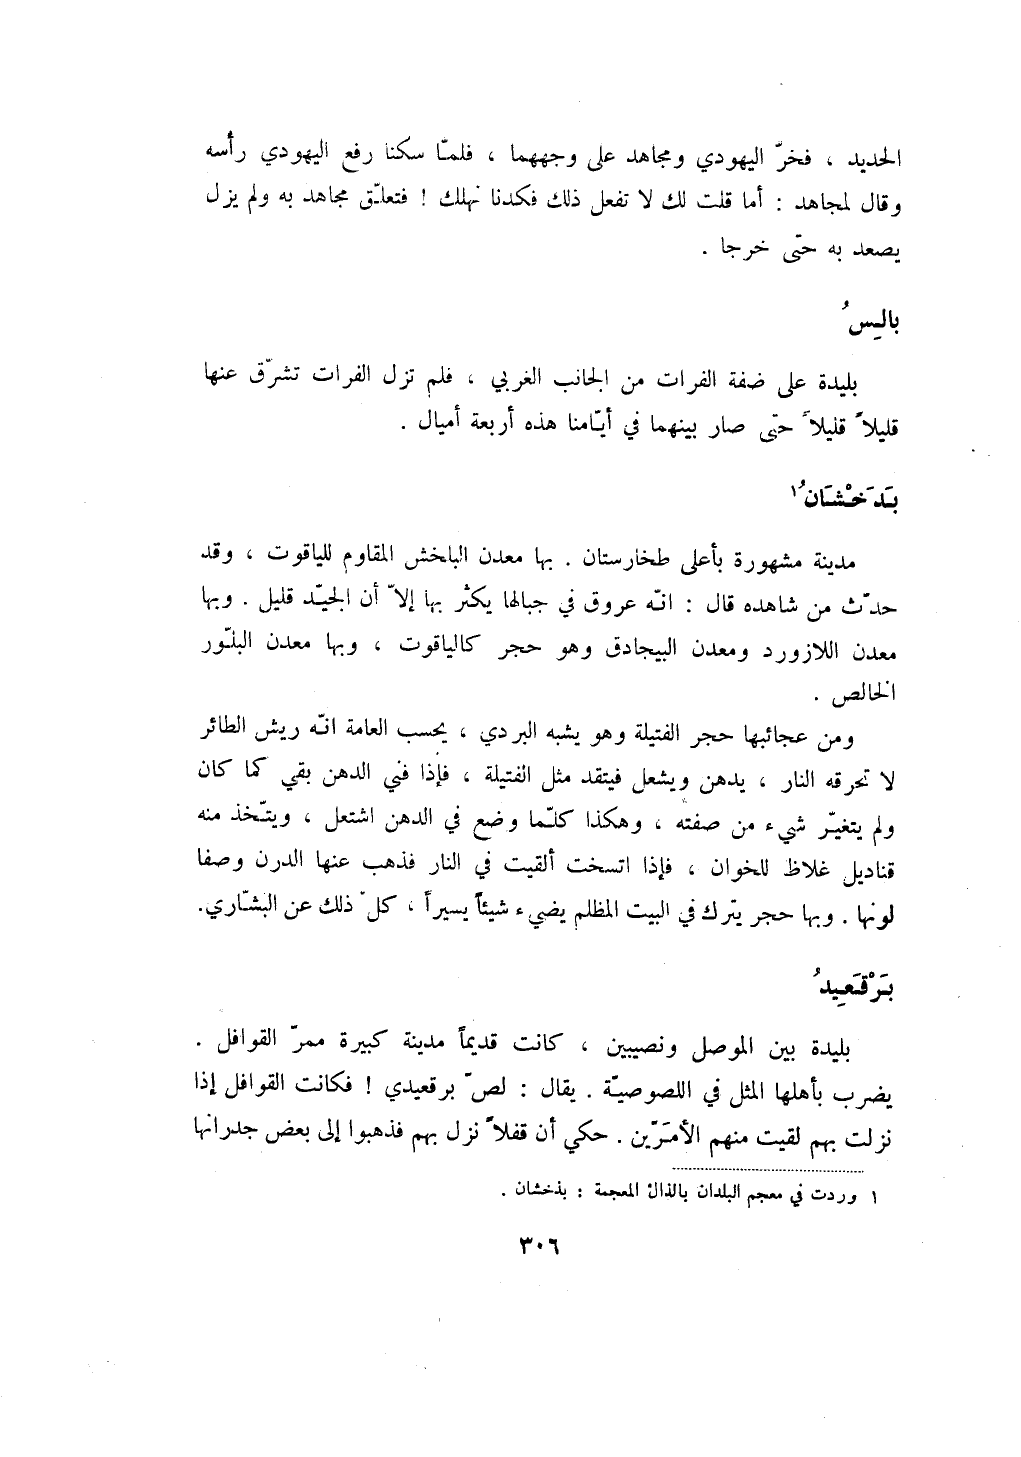 الحديد ، فخرّ اليهودي ومجاهد على وجههما ، فلمّا سكنا رفع اليهودي رأسه
وقال لمجاهد : أما قلت لك لا تفعل ذلك فكدنا نهلك ! فتعلّق مجاهد به ولم يزل
يصعد به حتّى خرجا .
بالِسُ
بليدة على ضفة الفرات من الجانب الغربي ، فلم تزل الفرات تشرّق عنها
قليلاً قليلاً حتّى صار بينهما في أيّامنا هذه أربعة أميال .
بَدَخْشَانُ١
مدينة مشهورة بأعلى طخارستان . بها معدن البلخش المقاوم للياقوت ، وقد
حدّث من شاهده قال : انّه عروق في جبالها يكثر بها إلاّ أن الجيّد قليل . وبها
معدن اللازورد ومعدن البيجادق وهو حجر كالياقوت ، وبها معدن البلّور
الخالص .
ومن عجائبها حجر الفتيلة وهو يشبه البردي ، يحسب العامة انّه ريش الطائر
لا تحرقه النار ، يدهن ويشعل فيتقد مثل الفتيلة ، فإذا فني الدهن بقي كما كان
ولم يتغيّر شيء من صفته ، وهكذا كلّما وضع في الدهن اشتعل ، ويتّخذ منه
قناديل غلاظ للخوان ، فإذا اتسخت ألقيت في النار فذهب عنها الدرن وصفا
لونها . وبها حجر يترك في البيت المظلم يضيء شيئاً يسيراً ، كلّ ذلك عن البشّاري.
بَرْقَعِيدُ
بليدة بين الموصل ونصيبين ، كانت قديماً مدينة كبيرة ممرّ القوافل .
يضرب بأهلها المثل في اللصوصيّة . يقال : لصّ برقعيدي ! فكانت القوافل إذا
نزلت بهم لقيت منهم الأمَرّين . حكي أن قفلاً نزل بهم فذهبوا إلى بعض جدرانها
١ وردت في معجم البلدان بالذال المعجمة : بذخشان .
٣٠٦